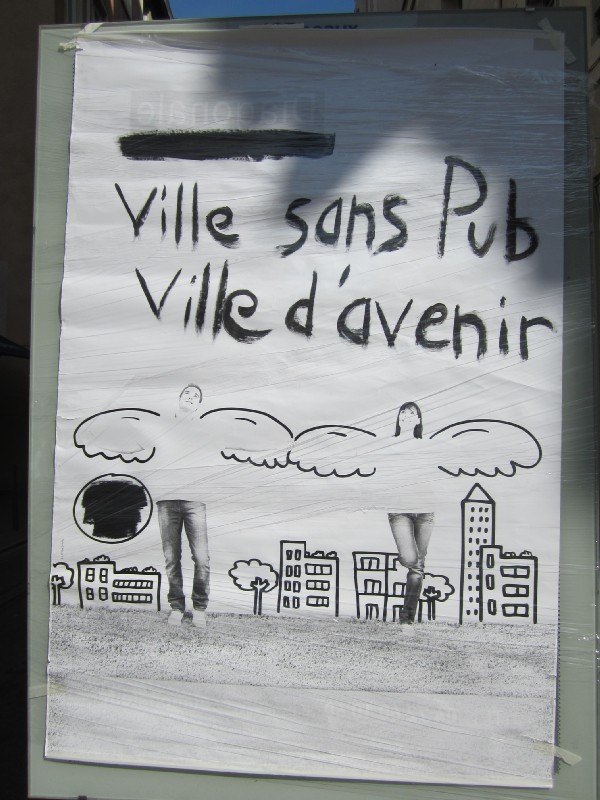 Ville sans Pub
Ville d'avenir